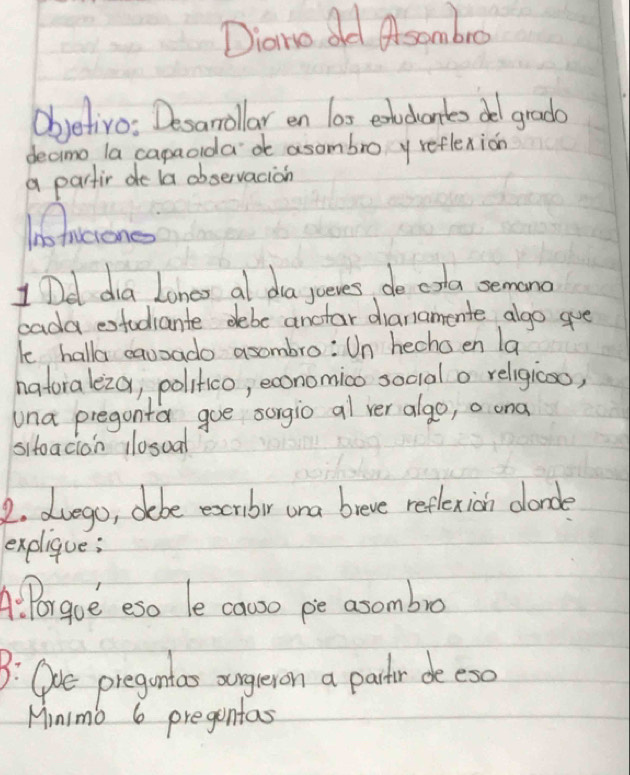 Diario del Asombro
Objetivo: Desarrollar en los estudiantes del grado
decimo la capacida de asombro y reflexión
a partir de la observación
Instruciones
1 Del dia Lunes al dia jueves de esta semana
cada estudiante debe anotar diariamente algo que
le halla causado asombro: Un hecho en la
naturaleza, politico, economico social o religioso,
una pregunta que surgio al ver algo, o una
situacion ilosual
2. Luego, debe escribir una breve reflexión donde
explique:
A: Porqué eso le causo ese asombro
B: Que preguntas surgieron a partir de eso
Minimo 6 preguntas